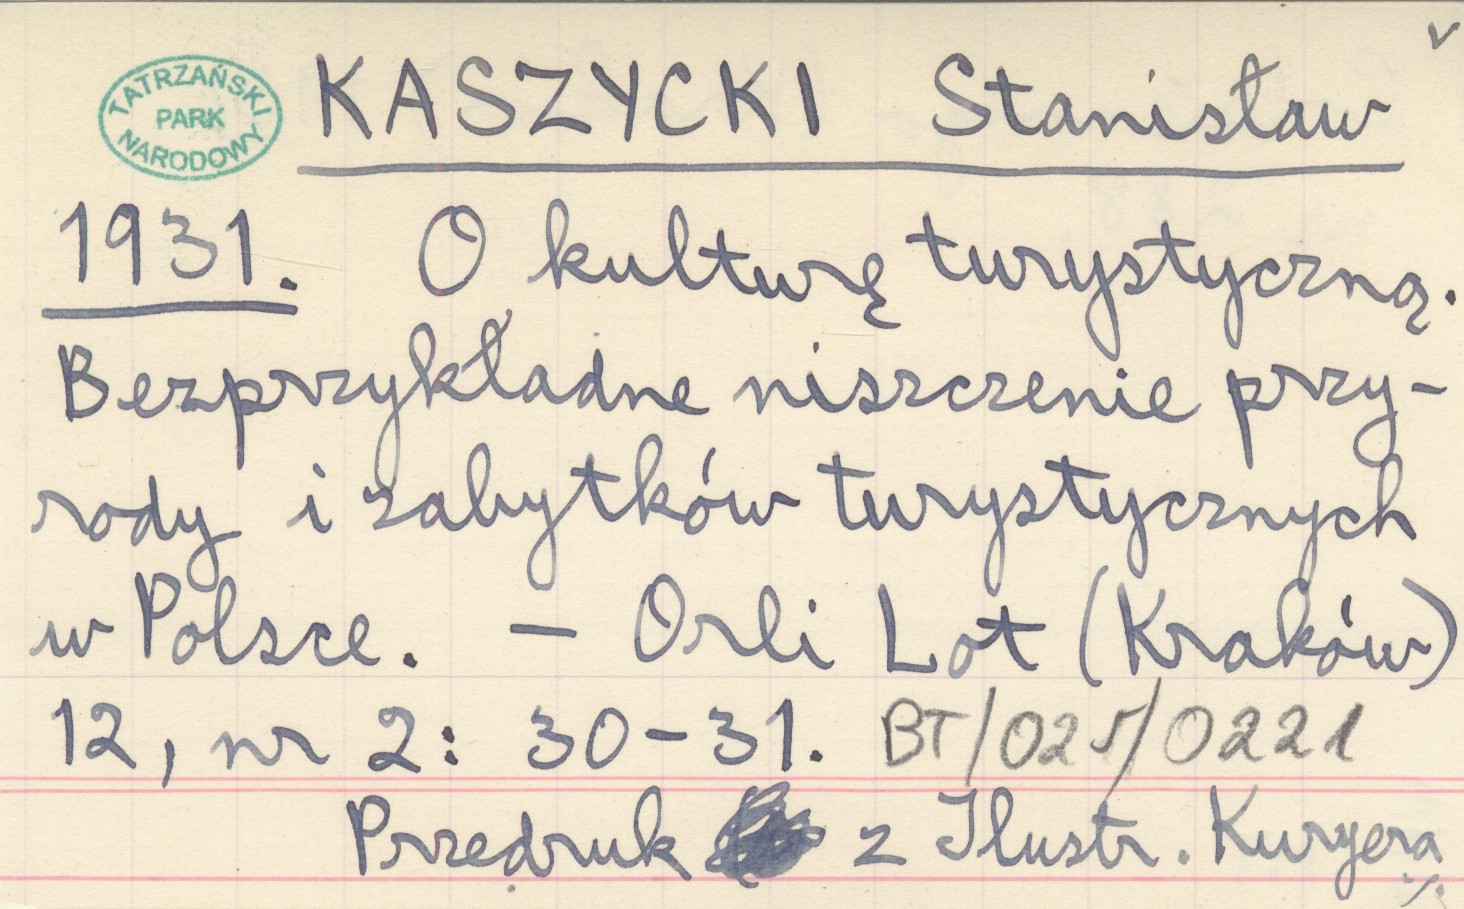 TATRZAŃSKI
PARK
NARODOWY
KASZYCKI Stanisław
1931. O kulturę turystyczną.
Bezprzykładne niszczenie przy-
rody i zabytków turystycznych
w Polsce. — Orli Lot (Kraków)
12, nr 2: 30-31. BT/025/0221
Przedruk z Ilustr. Kuryera